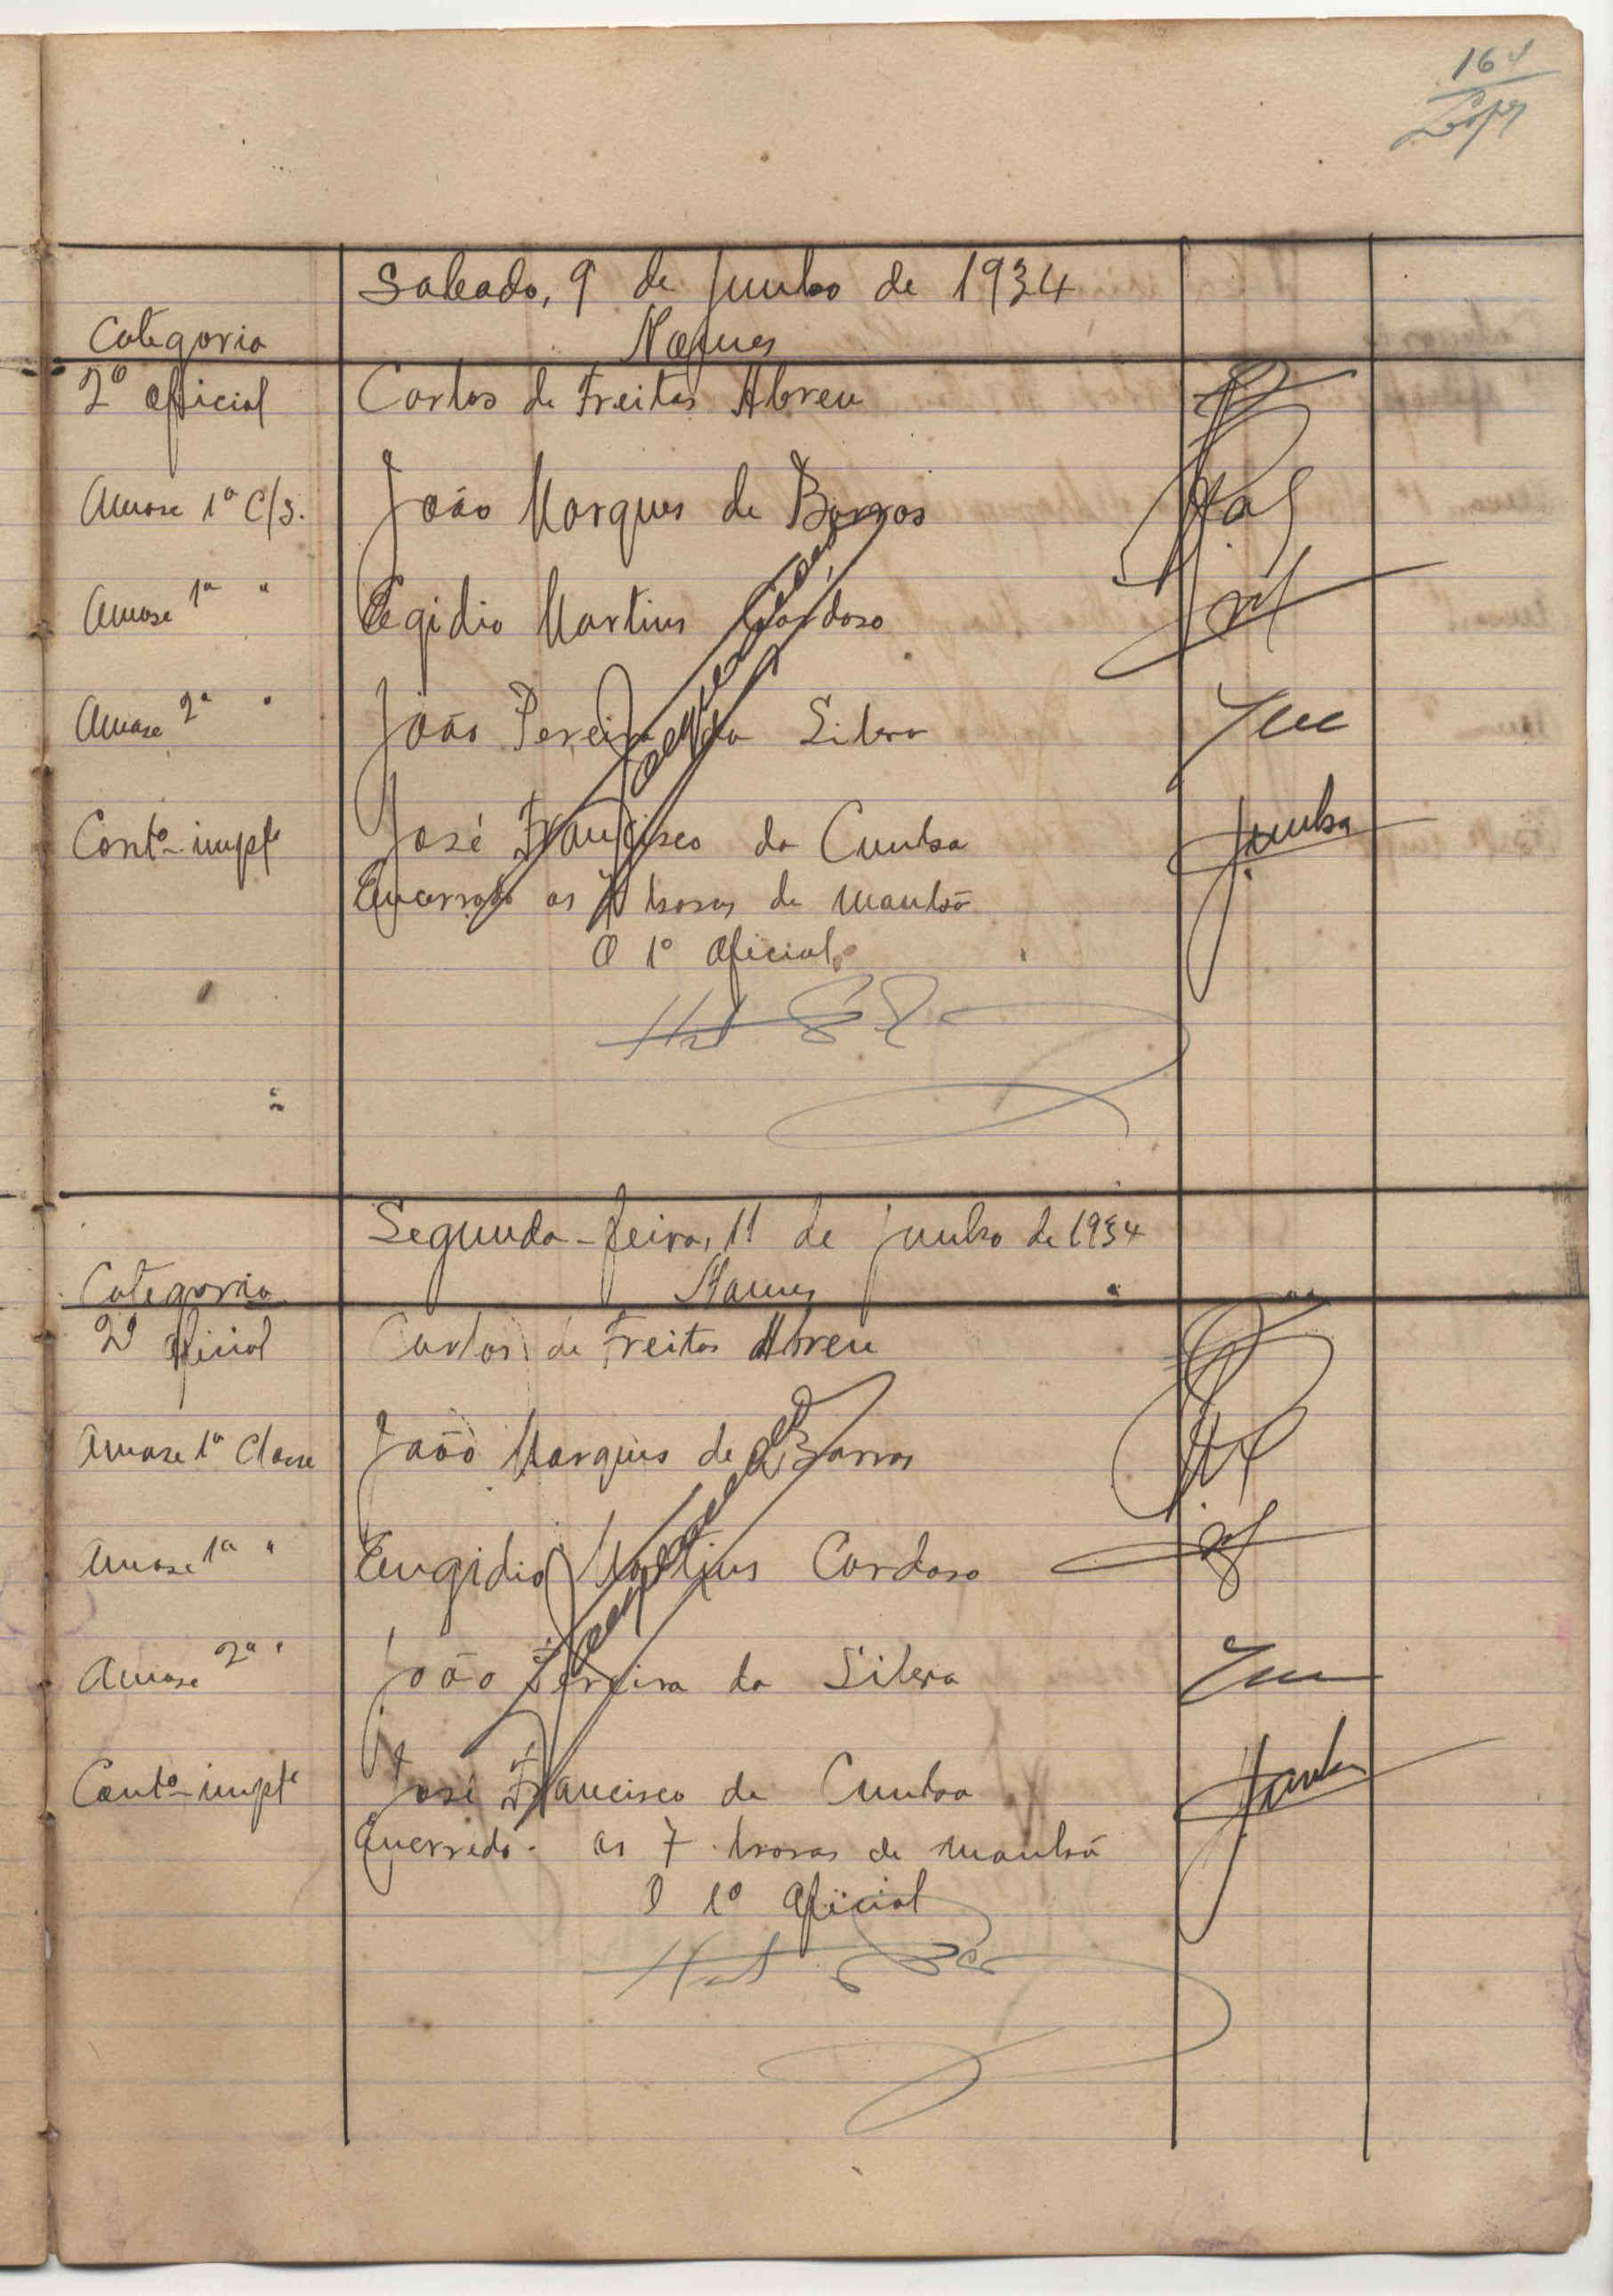 164
Lopes
Sabado, 9 de Junho de 1934
Categoria Nomes
2º Oficial Carlos de Freitas Abreu
Amase 1ª Cls. João Marques de Barros
Amase 1ª " Egidio Martins Cardoso
Amase 2ª " João Pereira da Silva
Contº impte José Francisco da Cunha Cunha
Encerrado as 7 horas da manhã
O 1º Oficial
Segunda-feira, 11 de junho de 1934
Categoria Nomes
2º Oficial Carlos de Freitas Abreu
Amase 1ª Classe João Marques de Barros
Amase 1ª " Engidio Martins Cardoso
Amase 2ª " João Pereira da Silva
Contº impte José Francisco da Cunha Cunha
Encerrado as 7 horas da manhã
O 1º Oficial